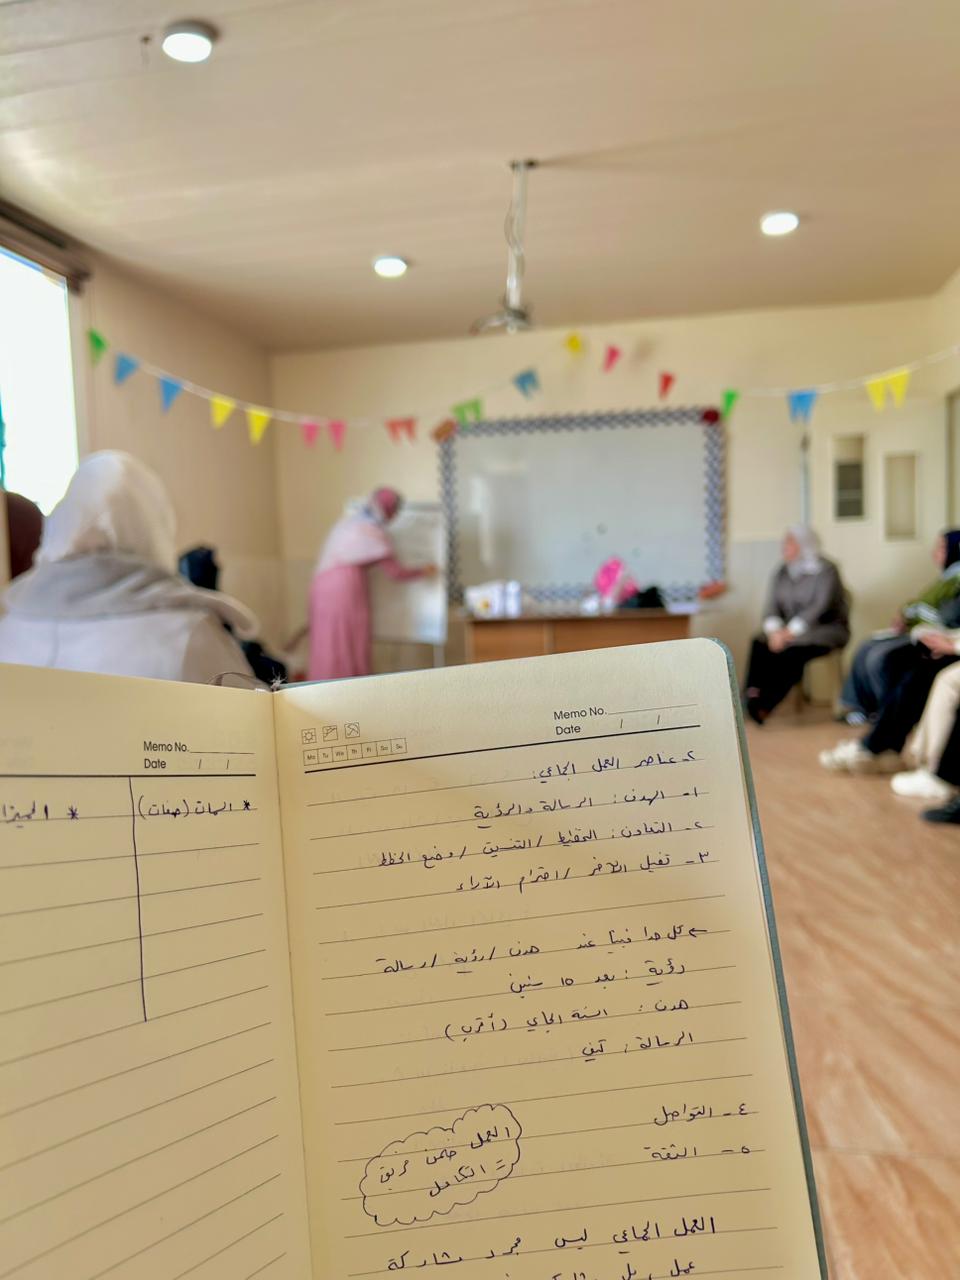 Memo No.
Date / /
Mo Tu We Th Fr Sa Su
٢- عناصر العمل الجماعي:
١- الهدف: الرسالة والرؤية
٢- التعاون: التخطيط / التنسيق / وضع الخطط
٣- تقبل الآخر / احترام الآراء
كل حدا فينا عند هدف / رؤية / رسالة
رؤية: بعد ١٥ سنين
هدف: السنة الجاي (أقرب)
الرسالة: كيف
٤- التواصل
٥- الثقة
العمل ضمن فريق
= التكامل
العمل الجماعي ليس مجرد مشاركة
عمل بل
Memo No.
Date / /
* السمات (صفات)